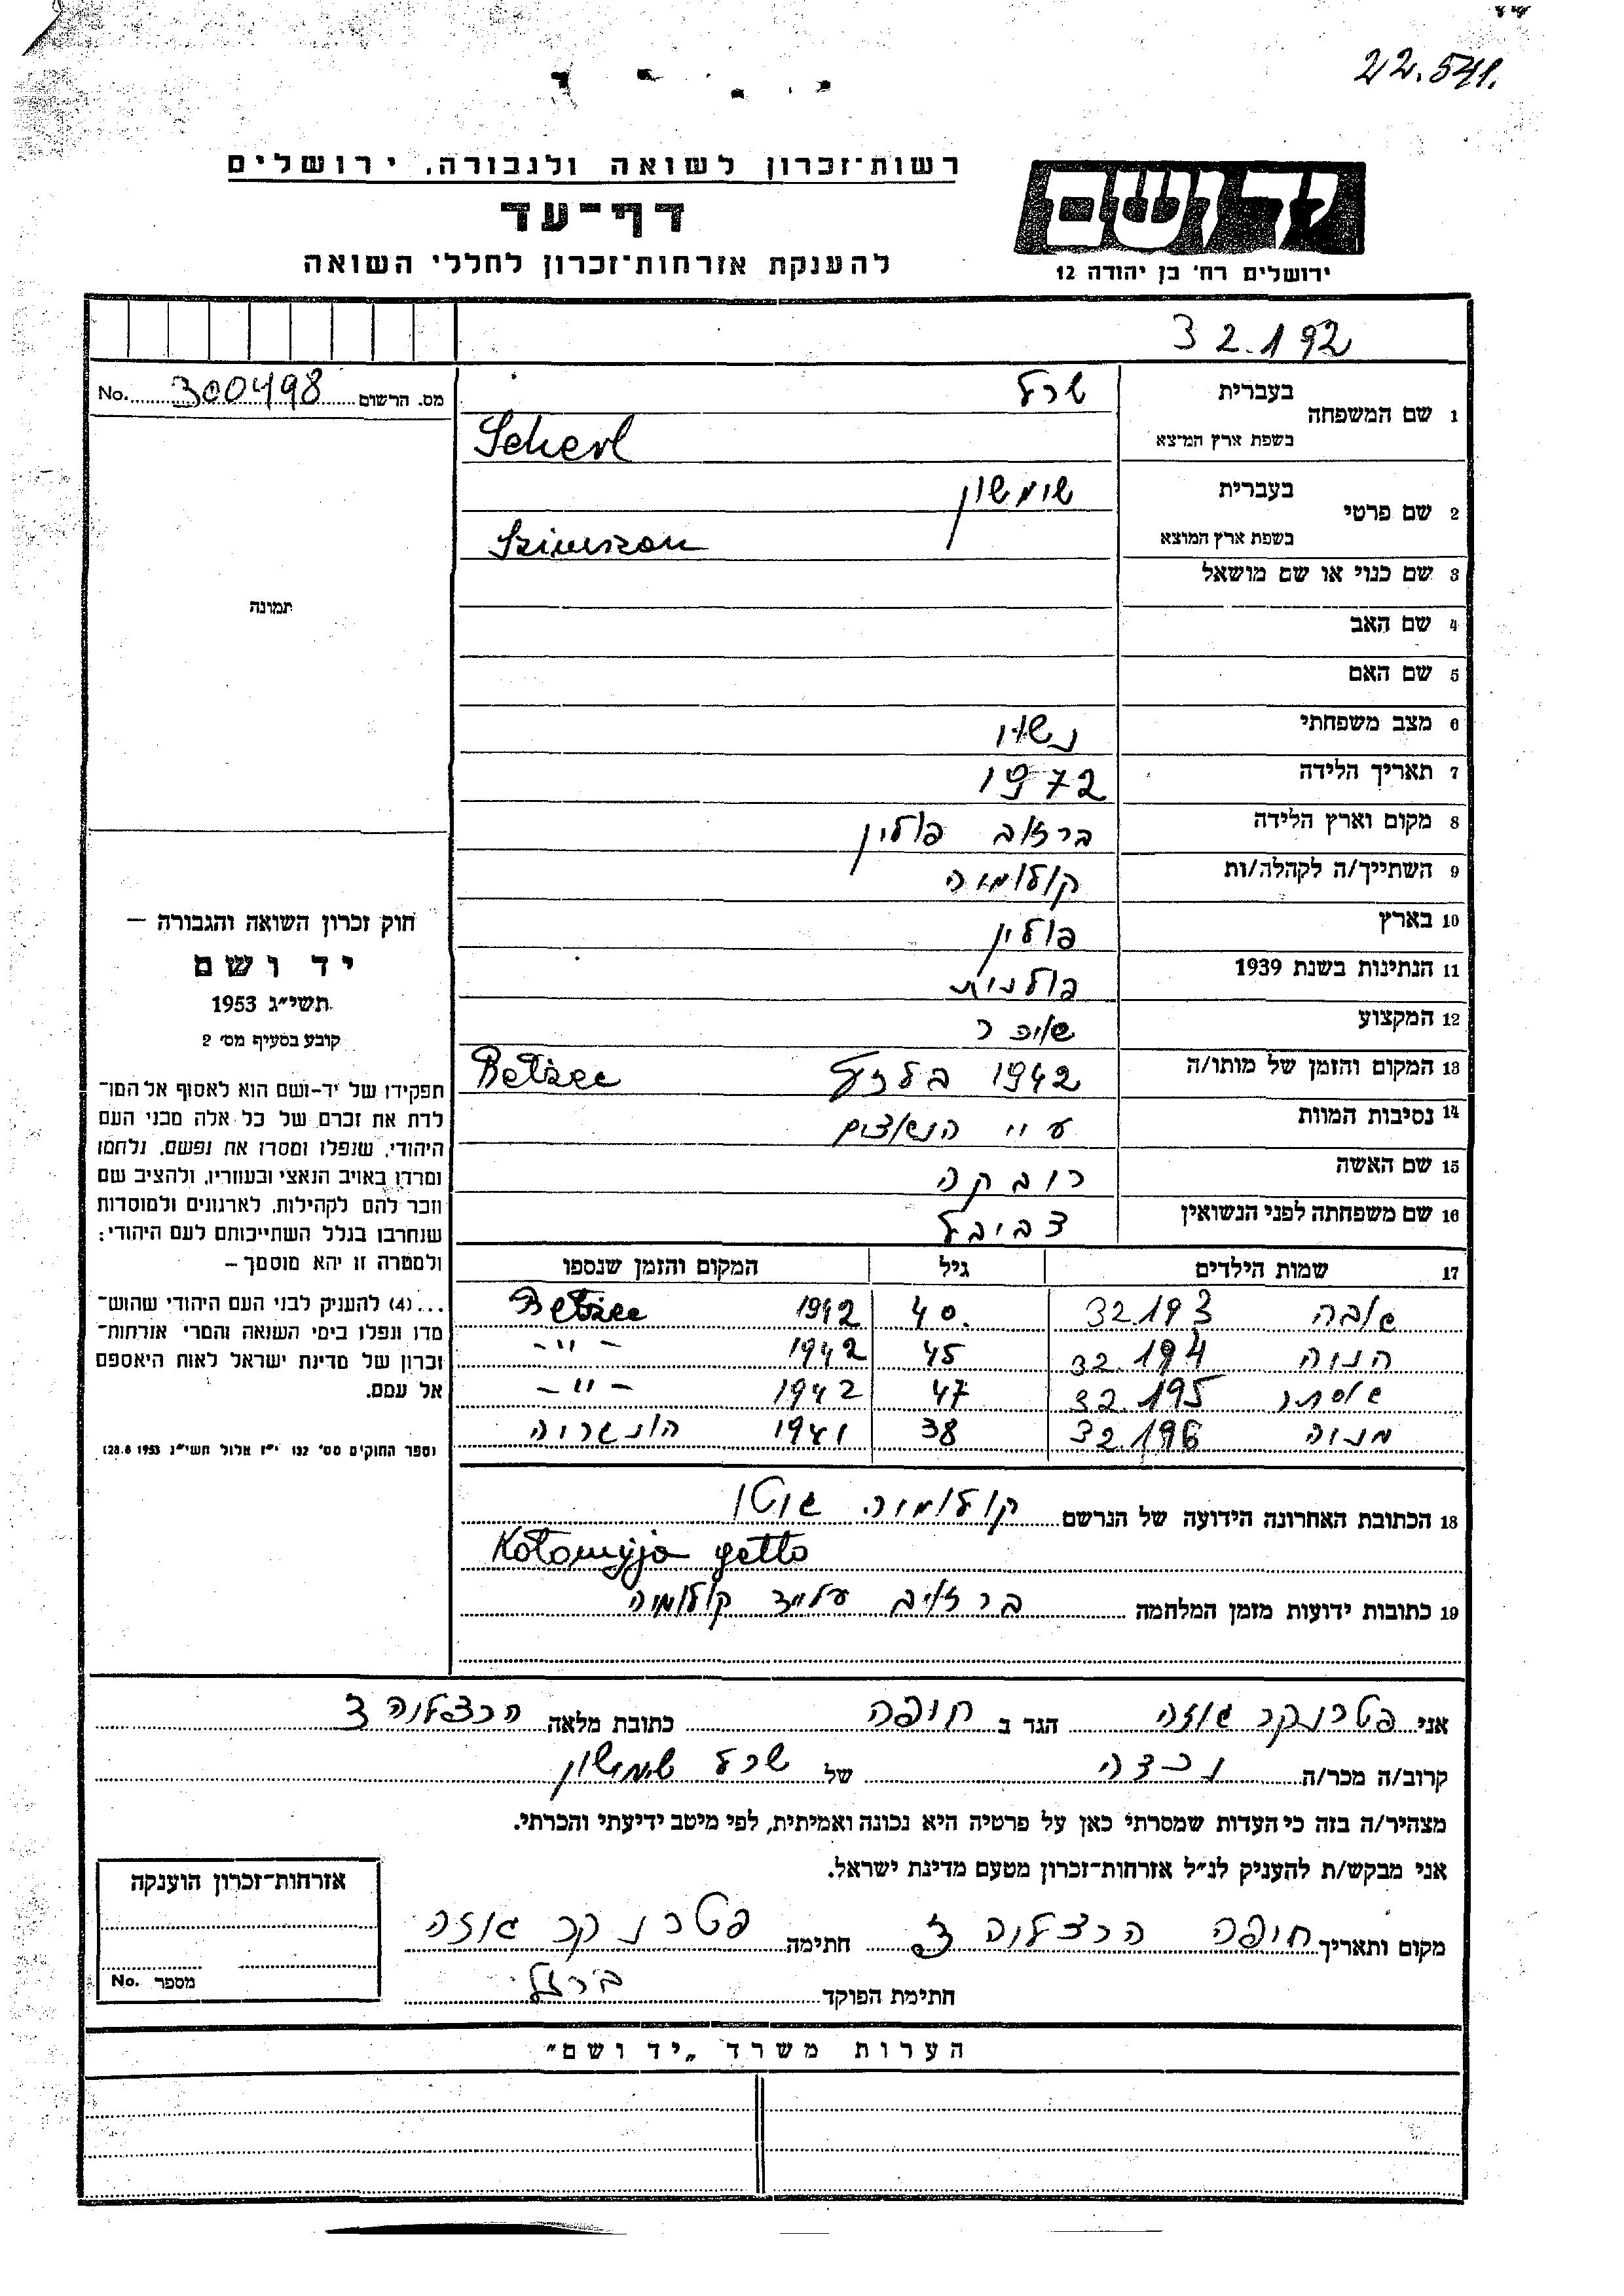 22.541.
רשות־זכרון לשואה ולגבורה, ירושלים
דף־עד
להענקת אזרחות־זכרון לחללי השואה
יד ושם
ירושלים רח׳ בן יהודה 12
32.192
מס. הרשום 300498 No.
1 שם המשפחה
בעברית שרל
בשפת ארץ המוצא Scherl
2 שם פרטי
בעברית שומשון
בשפת ארץ המוצא Szimszon
3 שם כנוי או שם מושאל
4 שם האב
5 שם האם
6 מצב משפחתי נשוי
7 תאריך הלידה 1972
8 מקום וארץ הלידה ברזוב פולין
9 השתייך/ה לקהלה/ות קולומיה
10 בארץ פולין
11 הנתינות בשנת 1939 פולנית
12 המקצוע
13 המקום והזמן של מותו/ה 1942 Betzec
14 נסיבות המוות ע״י הנאצים
15 שם האשה רובקה
16 שם משפחתה לפני הנשואין
17 שמות הילדים גיל המקום והזמן שנספו
32193 40. 1942 Betzec
חנוה 32.194 45 1942 –״–
אסתר 32.195 47 1942 –״–
32.196 38 1941 הונגריה
18 הכתובת האחרונה הידועה של הנרשם קולומיה גיטו
Kołomyja getto
19 כתובות ידועות מזמן המלחמה ברזוב על״ד קולומיה
תמונה
חוק זכרון השואה והגבורה –
יד ושם
תשי״ג 1953
קובע בסעיף מס׳ 2
תפקידו של יד-ושם הוא לאסוף אל המו־
לדת את זכרם של כל אלה מבני העם
היהודי, שנפלו ומסרו את נפשם, נלחמו
ומרדו באויב הנאצי ובעוזריו, ולהציב שם
וזכר להם לקהילות, לארגונים ולמוסדות
שנחרבו בגלל השתייכותם לעם היהודי;
ולמטרה זו יהא מוסמך –
...(4) להעניק לבני העם היהודי שהוש־
מדו ונפלו בימי השואה והמרי אזרחות־
זכרון של מדינת ישראל לאות היאספם
אל עמם.
וספר החוקים מס׳ 132 י״ז אלול תשי״ג 28.8.1953)
אני פטרנקר הגר ב חיפה כתובת מלאה הרצליה 3
קרוב/ה מכר/ה נכדה של שרל שמשון
מצהיר/ה בזה כי העדות שמסרתי כאן על פרטיה היא נכונה ואמיתית, לפי מיטב ידיעתי והכרתי.
אני מבקש/ת להעניק לנ״ל אזרחות-זכרון מטעם מדינת ישראל.
מקום ותאריך חיפה הרצליה 3 חתימה פטרנקר
חתימת הפוקד
אזרחות-זכרון הוענקה
מספר No.
הערות משרד „יד ושם״